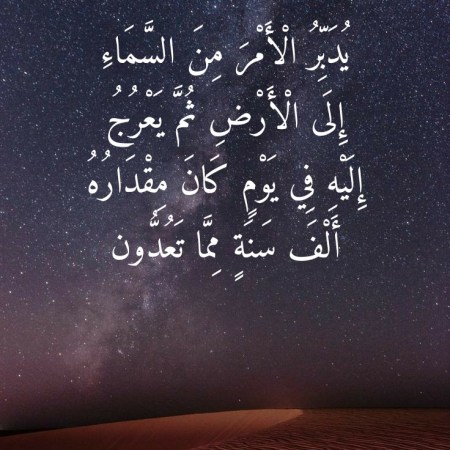 يُدَبِّرُ الْأَمْرَ مِنَ السَّمَاءِ
إِلَى الْأَرْضِ ثُمَّ يَعْرُجُ
إِلَيْهِ فِي يَوْمٍ كَانَ مِقْدَارُهُ
أَلْفَ سَنَةٍ مِمَّا تَعُدُّون